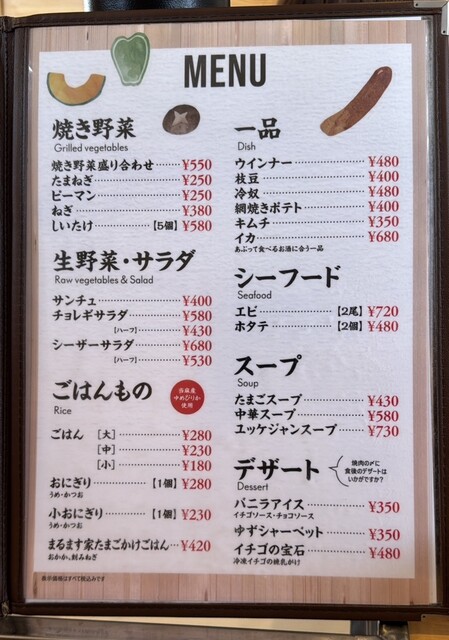 MENU
焼き野菜
Grilled vegetables
焼き野菜盛り合わせ……¥550
たまねぎ……¥250
ピーマン……¥250
ねぎ……¥380
しいたけ……【5個】¥580
生野菜・サラダ
Raw vegetables & Salad
サンチュ……¥400
チョレギサラダ……¥580
【ハーフ】……¥430
シーザーサラダ……¥680
【ハーフ】……¥530
ごはんもの
Rice
当麻産
ゆめぴりか
使用
ごはん [大]……¥280
[中]……¥230
[小]……¥180
おにぎり……【1個】¥280
うめ・かつお
小おにぎり……【1個】¥230
うめ・かつお
まるます家たまごかけごはん…¥420
おかか、刻みねぎ
表示価格はすべて税込みです
一品
Dish
ウインナー……¥480
枝豆……¥400
冷奴……¥480
網焼きポテト……¥400
キムチ……¥350
イカ……¥680
あぶって食べるお酒に合う一品
シーフード
Seafood
エビ……【2尾】¥720
ホタテ……【2個】¥480
スープ
Soup
たまごスープ……¥430
中華スープ……¥580
ユッケジャンスープ……¥730
デザート
Dessert
焼肉の〆に
食後のデザートは
いかがですか？
バニラアイス……¥350
イチゴソース・チョコソース
ゆずシャーベット……¥350
イチゴの宝石……¥480
冷凍イチゴの練乳がけ